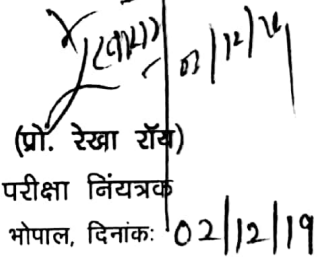 (प्रो. रेखा रॉय)
परीक्षा निंयत्रक
भोपाल, दिनांकः 02/12/19